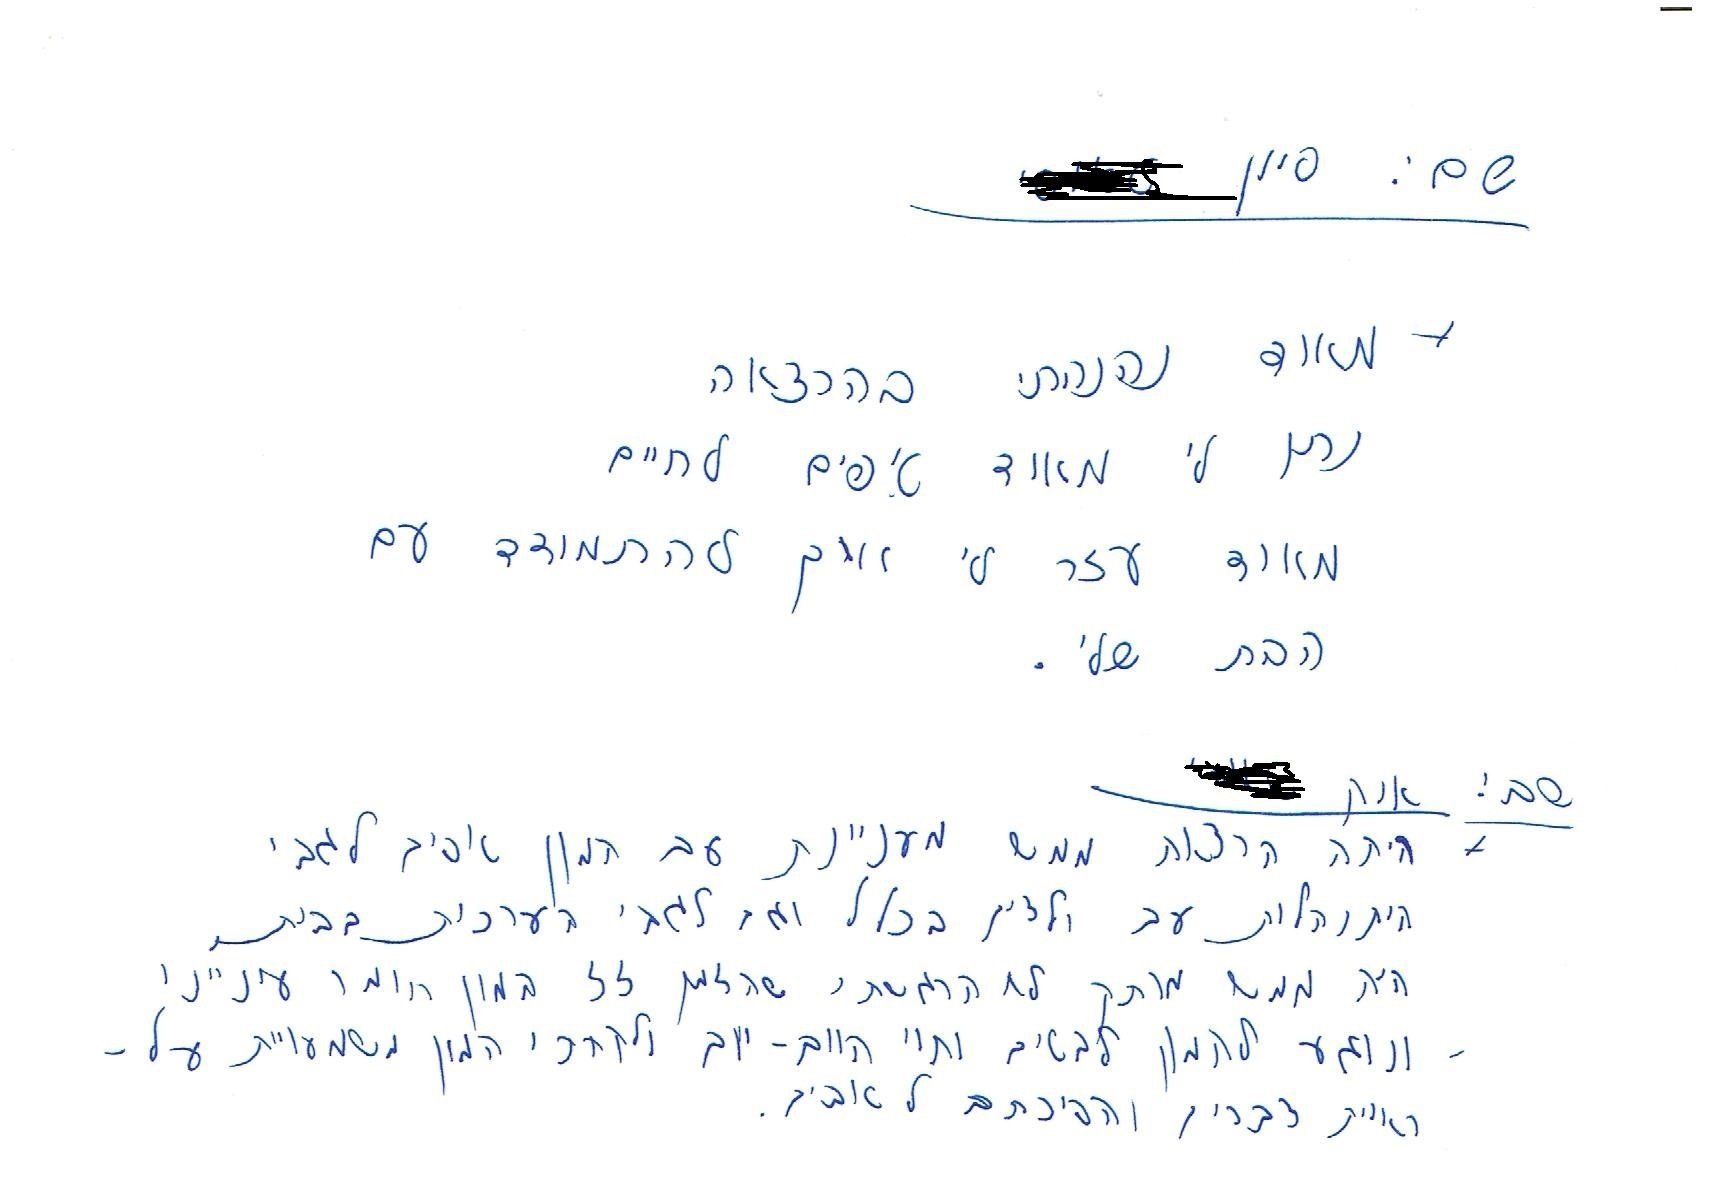 שם: סיון
+ מאוד נהנתי בהרצאה
נתן לי מאוד טיפים לחיים
מאוד עזר לי איך להתמודד עם
הבת שלי.
שם:
+ היתה הרצאות ממש מעניינת עם המון טיפים לגבי
היתנהלות עם ילדים בכלל וגם לגבי הערכות בבית
היה ממש מרתק לא הרגשתי שהזמן זז המון חומר ענייני
- ונוגע להמון לבטים וחיי היום-יום ולקחתי המון משמעויית על-
ראיית דברים והפיכתם לטובים.